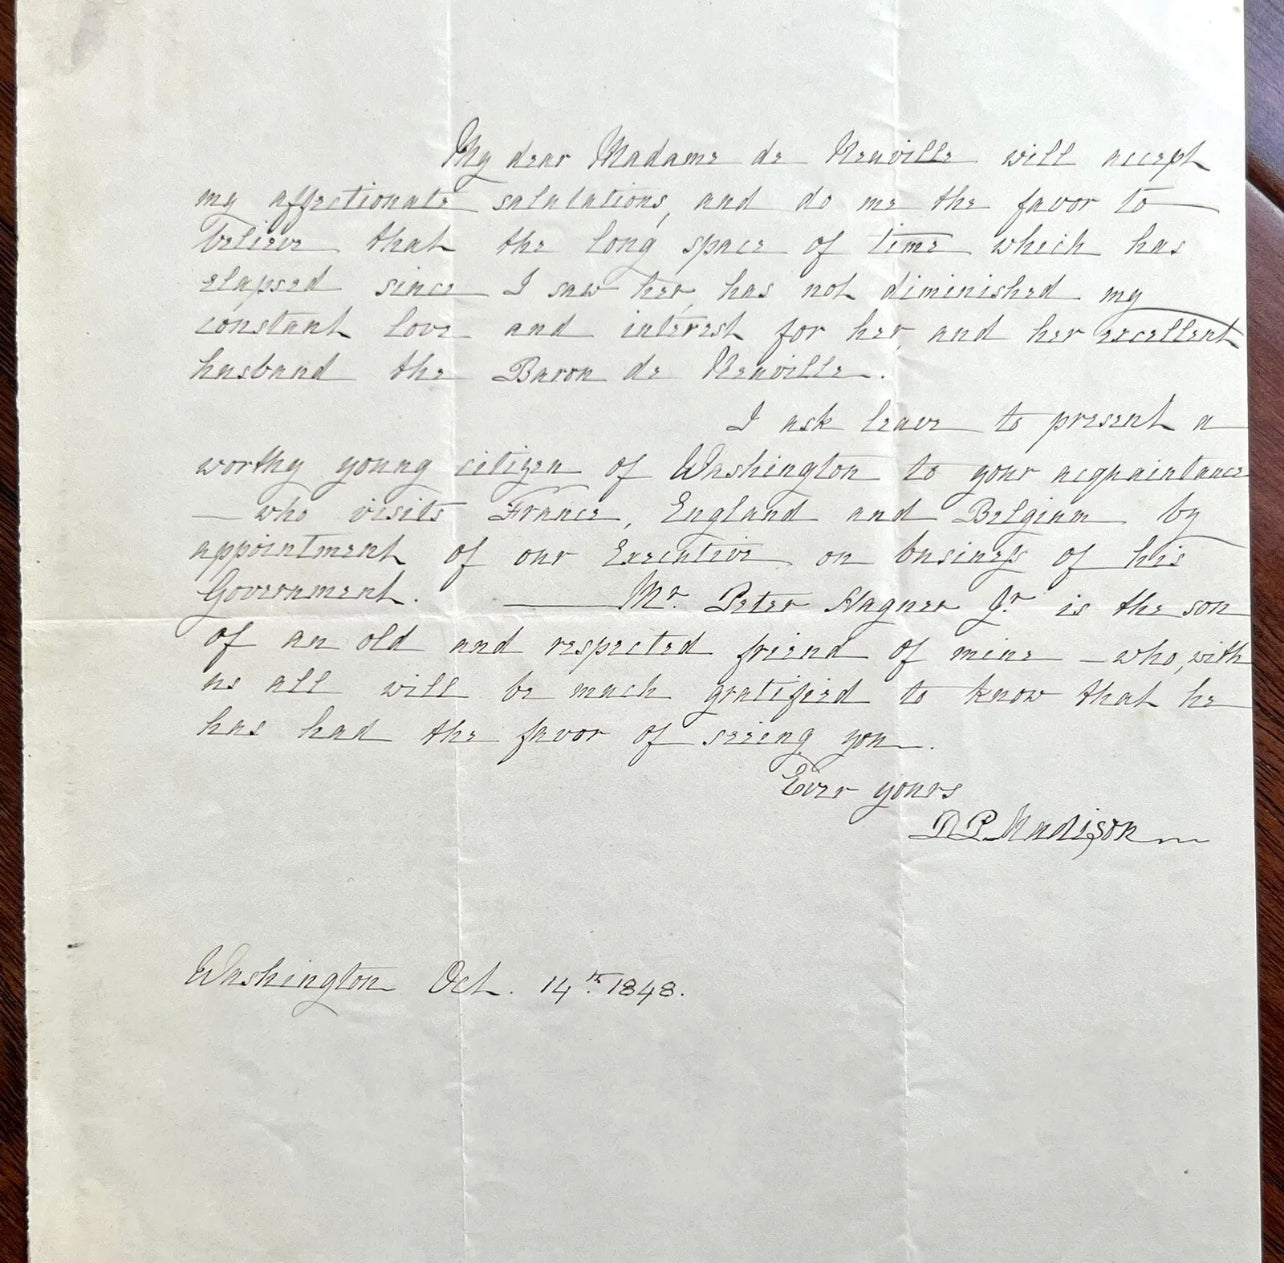 My dear Madame de Neuville will accept
my affectionate salutations, and do me the favor to
believe that the long space of time which has
elapsed since I saw her, has not diminished my
constant love and interest for her, and her excellent
husband the Baron de Neuville.
I ask leave to present a
worthy young citizen of Washington to your acquaintance
— who visits France, England and Belgium by
appointment of our Executive on business of his
Government. — Mr. Peter Hagner Jr is the son
of an old and respected friend of mine — who, with
us all will be much gratified to know that he
has had the favor of seeing you.
Ever yours
D. P. Madison
Washington Oct. 14th 1848.